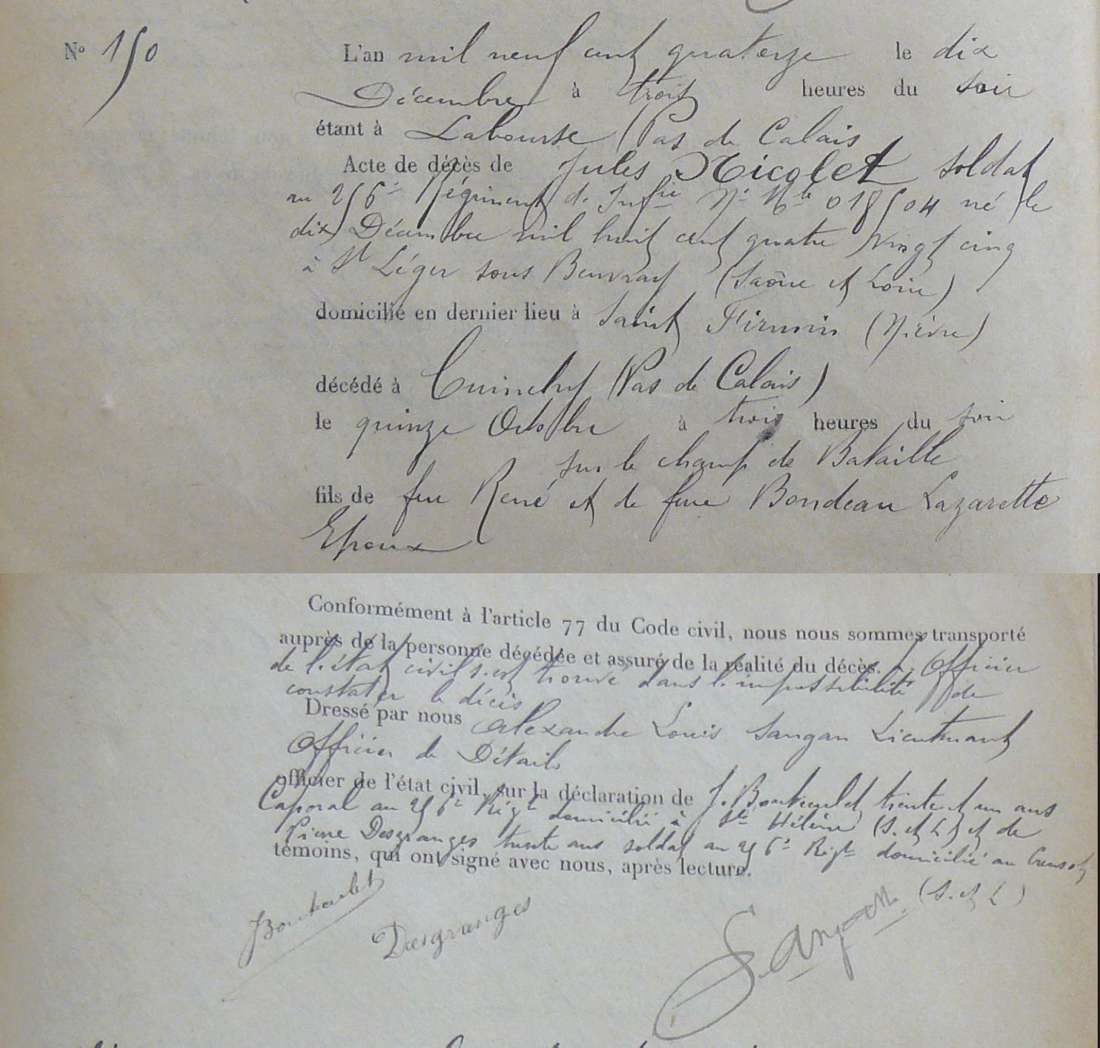 N° 150
L'an mil neuf cent quatorze le dix
Décembre à trois heures du soir
étant à Labourse (Pas de Calais
Acte de décès de Jules Nicolet soldat
au 256e Régiment d'Infrie N° Mle 018504 né le
dix Décembre mil huit cent quatre vingt cinq
à St Léger sous Beuvray (Saône et Loire)
domicilié en dernier lieu à Saint Firmin (Nièvre)
décédé à Cuinchy (Pas de Calais)
le quinze Octobre à trois heures du soir
sur le champ de Bataille
fils de feu René et de feue Bondeau Lazarette
Epoux
Conformément à l'article 77 du Code civil, nous nous sommes transporté
auprès de la personne décédée et assuré de la réalité du décès. L'Officier
de l'état civil s'est trouvé dans l'impossibilité de
constater le décès
Dressé par nous Alexandre Louis Sangan Lieutenant
Officier de Détails
officier de l'état civil, sur la déclaration de J. trente et un ans
Caporal au 256e Régt domicilié à Ste Hélène (S. et L) et de
Pierre Desgranges trente ans soldat au 256e Régt domicilié au Creusot
témoins, qui ont signé avec nous, après lecture.
(S. et L)
Desgranges
Sangan